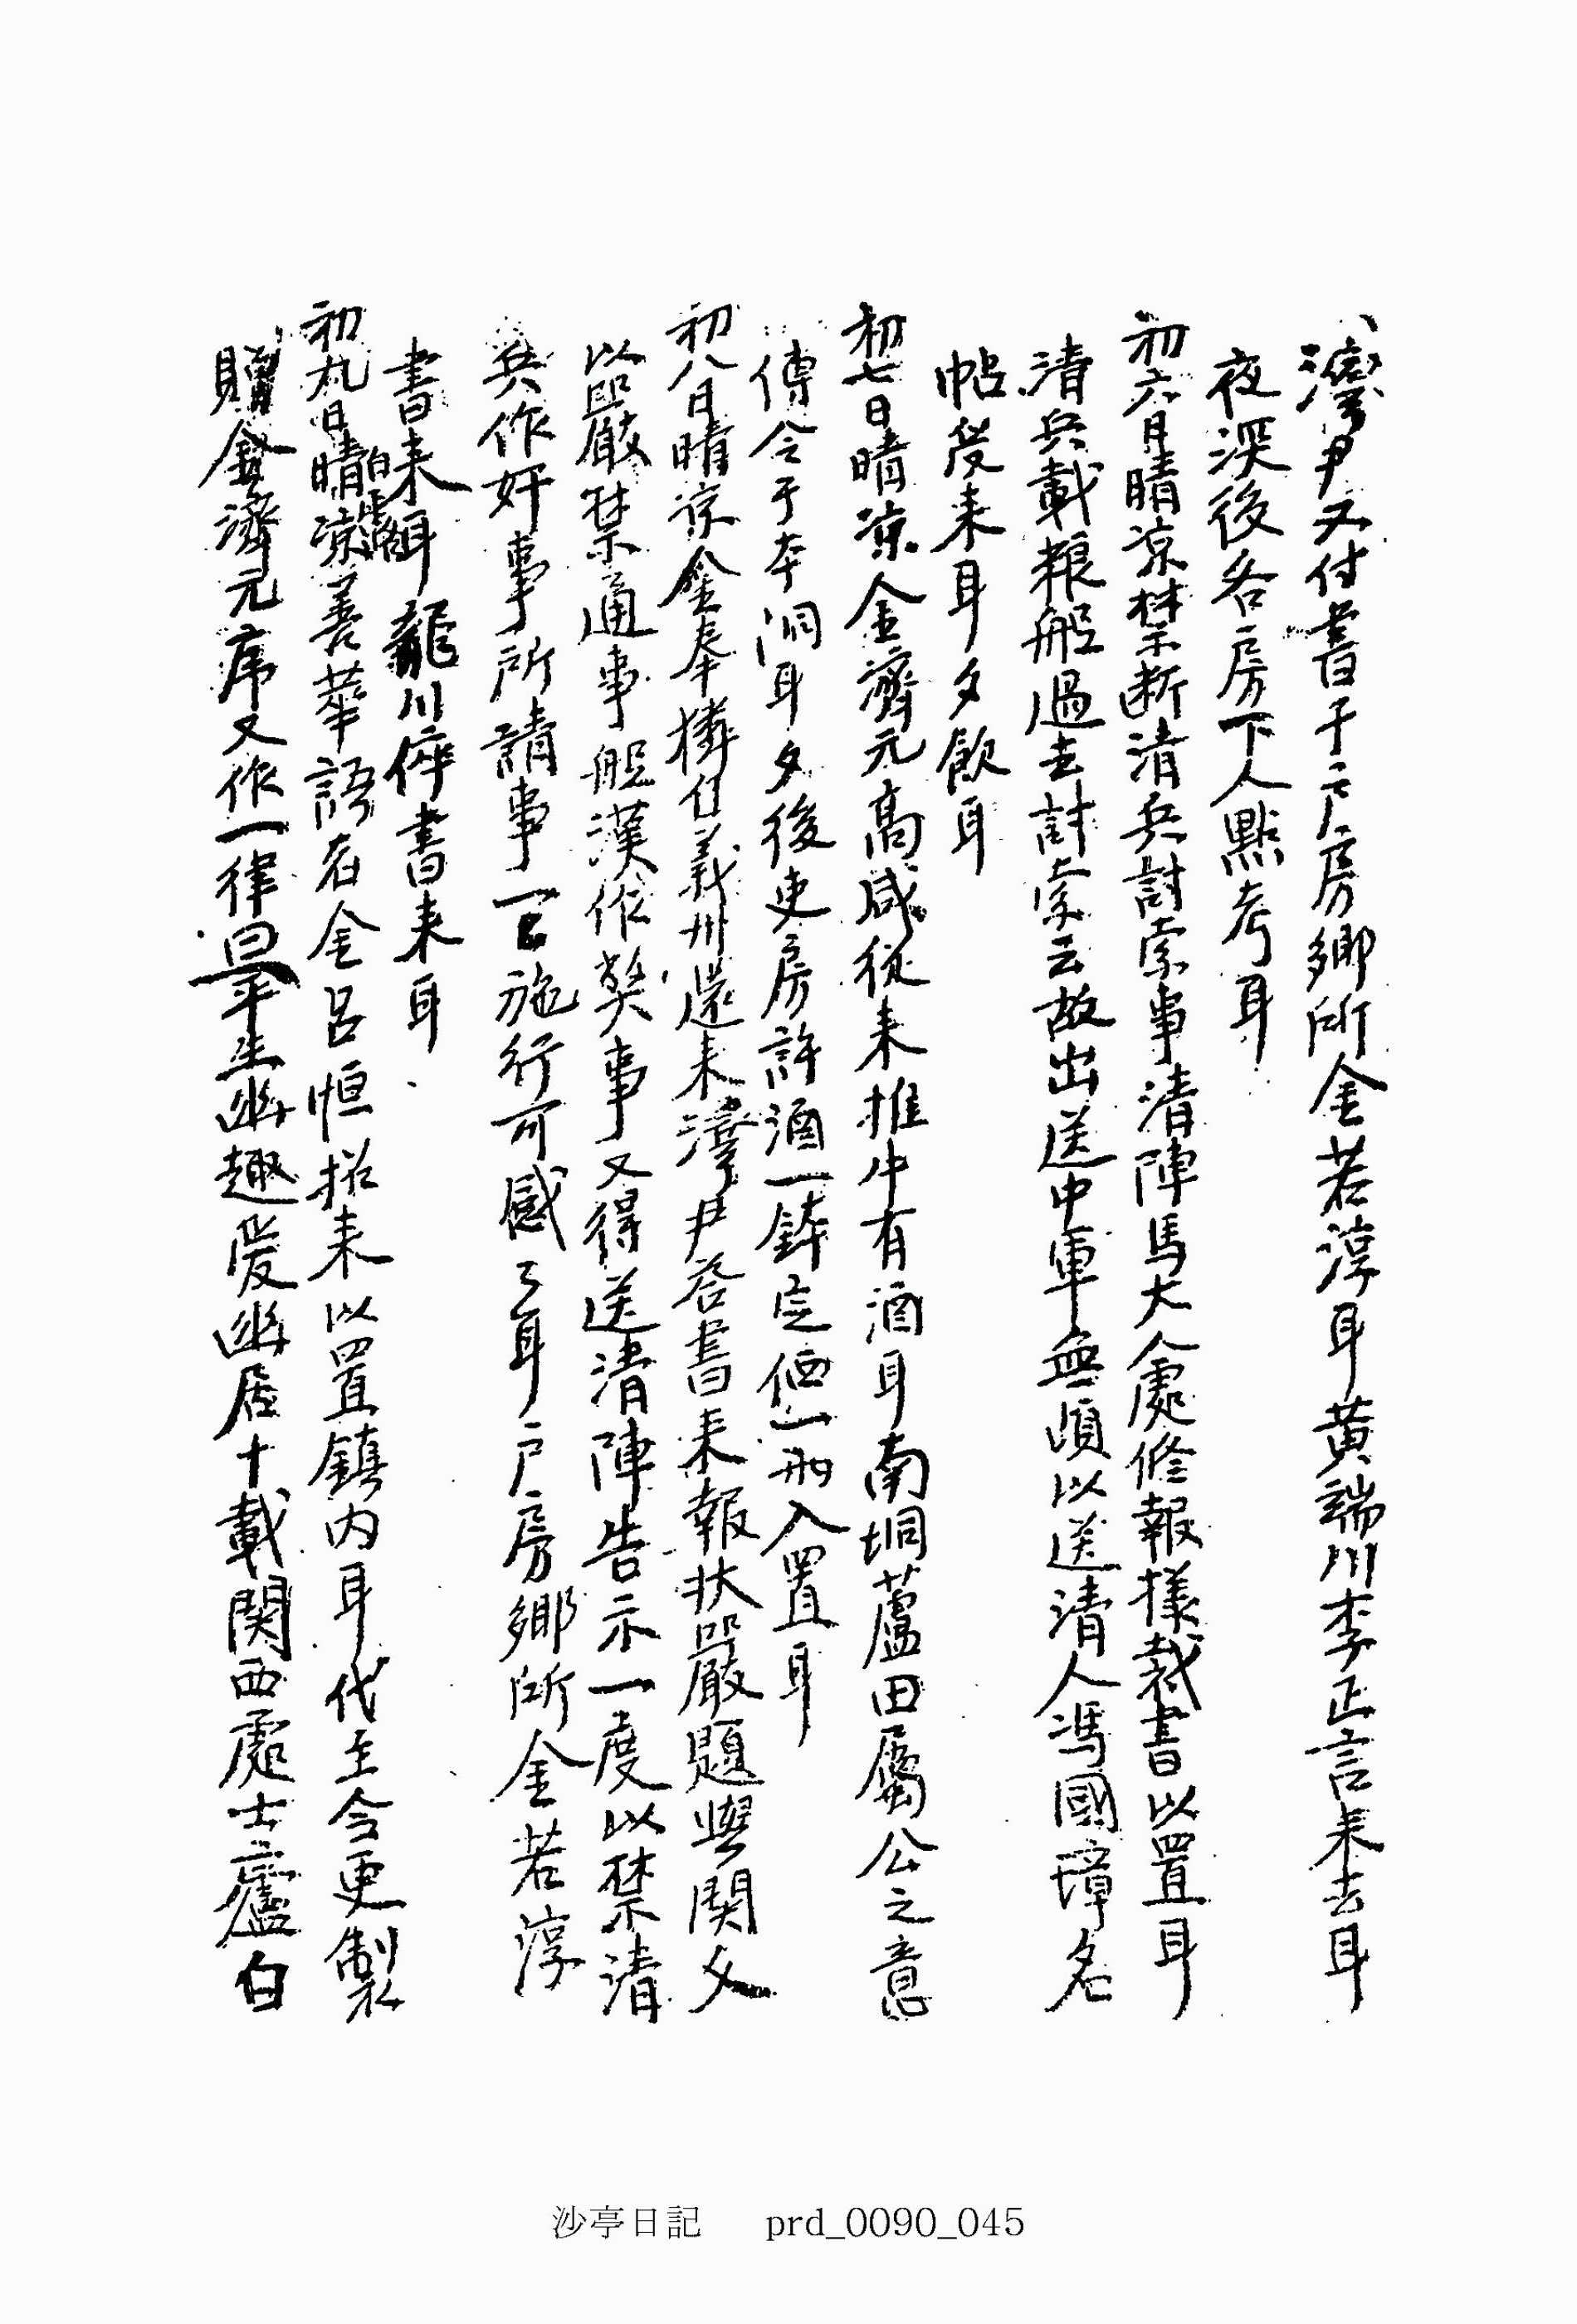 灣尹又付書于戶房鄕所金若淳耳黃端川李正言来去耳
夜深後各房下人點考耳
初六日晴凉禁断清兵討索事清陣馬大人處修報樣裁書以置耳
清兵載粮船過去討索云故出送中軍無頉以送清人馮國璋名
帖受来耳夕飮耳
初七日晴凉金濟元高咸從来推牛有酒耳南垌蘆田屬公之意
傳令于本洞耳夕後吏房許酒一鉢定価一兩入置耳
初八日晴凉金奉獜自義州還来灣尹答書来報狀嚴題與関文
以嚴禁通事船漢作獘事又得送清陣告示一度以禁清
兵作奸事所請事一一施行可感々耳戶房鄕所金若淳
書来耳龍川倅書来耳
初九日晴凉善華語者金呂恒招来以置鎮内耳代主令更製
贈金濟元序又作一律曰平生幽趣愛幽居十載関西處士廬白